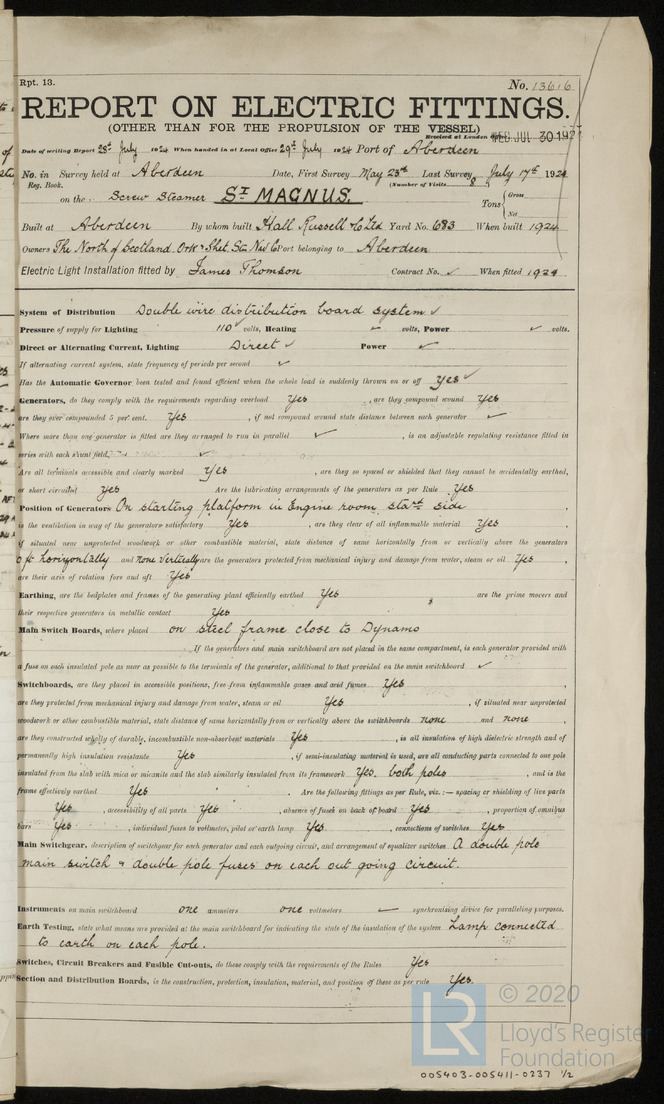 Rpt. 13.
No. 13616
REPORT ON ELECTRIC FITTINGS.
(OTHER THAN FOR THE PROPULSION OF THE VESSEL)
Received at London Office WED JUL 30 1924
Date of writing Report 28th July 1924 When handed in at Local Office 29th July 1924 Port of Aberdeen
No. in Survey held at Aberdeen Date, First Survey May 23rd Last Survey July 17th 1924
Reg. Book. (Number of Visits 8
on the Screw Steamer ST MAGNUS. Tons { Gross
Net
Built at Aberdeen By whom built Hall Russell & Co Ltd Yard No. 683 When built 1924
Owners The North of Scotland, Ork & Shet. Stm Nav Co Port belonging to Aberdeen
Electric Light Installation fitted by James Thomson Contract No. ✓ When fitted 1924
System of Distribution Double wire distribution board system ✓
Pressure of supply for Lighting 110 ✓ volts, Heating ✓ volts, Power ✓ volts.
Direct or Alternating Current, Lighting Direct ✓ Power ✓
If alternating current system, state frequency of periods per second ✓
Has the Automatic Governor been tested and found efficient when the whole load is suddenly thrown on or off Yes ✓
Generators, do they comply with the requirements regarding overload Yes , are they compound wound Yes
are they over compounded 5 per cent. Yes , if not compound wound state distance between each generator ✓
Where more than one generator is fitted are they arranged to run in parallel ✓ , is an adjustable regulating resistance fitted in
series with each shunt field ✓
Are all terminals accessible and clearly marked Yes , are they so spaced or shielded that they cannot be accidentally earthed,
or short circuited Yes Are the lubricating arrangements of the generators as per Rule Yes
Position of Generators On starting platform in Engine room, start side ,
is the ventilation in way of the generators satisfactory Yes , are they clear of all inflammable material Yes ,
if situated near unprotected woodwork or other combustible material, state distance of same horizontally from or vertically above the generators
6 ft horizontally and none vertically are the generators protected from mechanical injury and damage from water, steam or oil Yes ,
are their axis of rotation fore and aft Yes
Earthing, are the bedplates and frames of the generating plant efficiently earthed Yes are the prime movers and
their respective generators in metallic contact Yes
Main Switch Boards, where placed on steel frame close to Dynamo
If the generators and main switchboard are not placed in the same compartment, is each generator provided with
a fuse on each insulated pole as near as possible to the terminals of the generator, additional to that provided on the main switchboard ✓
Switchboards, are they placed in accessible positions, free from inflammable gases and acid fumes Yes ,
are they protected from mechanical injury and damage from water, steam or oil Yes , if situated near unprotected
woodwork or other combustible material, state distance of same horizontally from or vertically above the switchboards none and none ,
are they constructed wholly of durable, incombustible non-absorbent materials Yes , is all insulation of high dielectric strength and of
permanently high insulation resistance Yes , if semi-insulating material is used, are all conducting parts connected to one pole
insulated from the slab with mica or micanite and the slab similarly insulated from its framework Yes. both poles , and is the
frame effectively earthed Yes . Are the following fittings as per Rule, viz.:— spacing or shielding of live parts
Yes , accessibility of all parts Yes , absence of fuses on back of board Yes , proportion of omnibus
bars Yes , individual fuses to voltmeter, pilot or earth lamp Yes , connections of switches Yes
Main Switchgear, description of switchgear for each generator and each outgoing circuit, and arrangement of equalizer switches A double pole
main switch & double pole fuses on each out going circuit.
Instruments on main switchboard one ammeters one voltmeters ✓ synchronising device for paralleling purposes.
Earth Testing, state what means are provided at the main switchboard for indicating the state of the insulation of the system Lamp connected
to earth on each pole.
Switches, Circuit Breakers and Fusible Cut-outs, do these comply with the requirements of the Rules Yes
Section and Distribution Boards, is the construction, protection, insulation, material, and position of these as per rule Yes.
LR
© 2020
Lloyd's Register
Foundation
005403-005411-0237 1/2